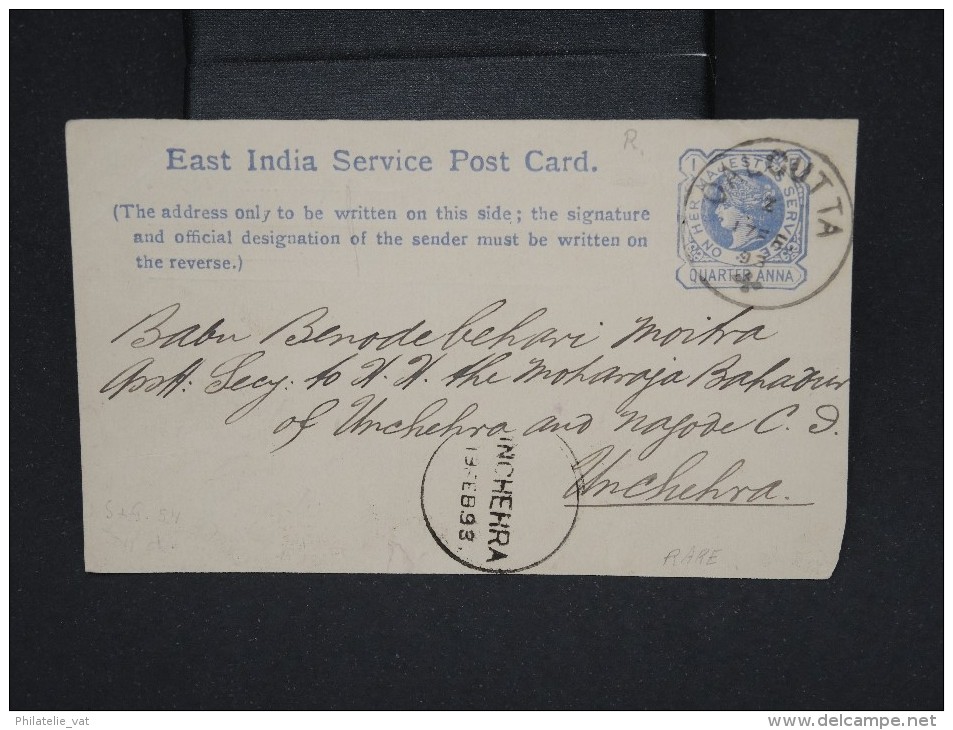 R.
East India Service Post Card.
(The address only to be written on this side; the signature
and official designation of the sender must be written on
the reverse.)
ON HER MAJESTY'S SERVICE
QUARTER ANNA
CALCUTTA
Babu Benodebehari Moitra
Asst. Secy. to H. H. the Moharaja Bahadur
of Unchehra and Nagode C. I.
Unchehra.
UNCHEHRA
13 FEB 93
RARE
Philatelie_vat
www.delcampe.net